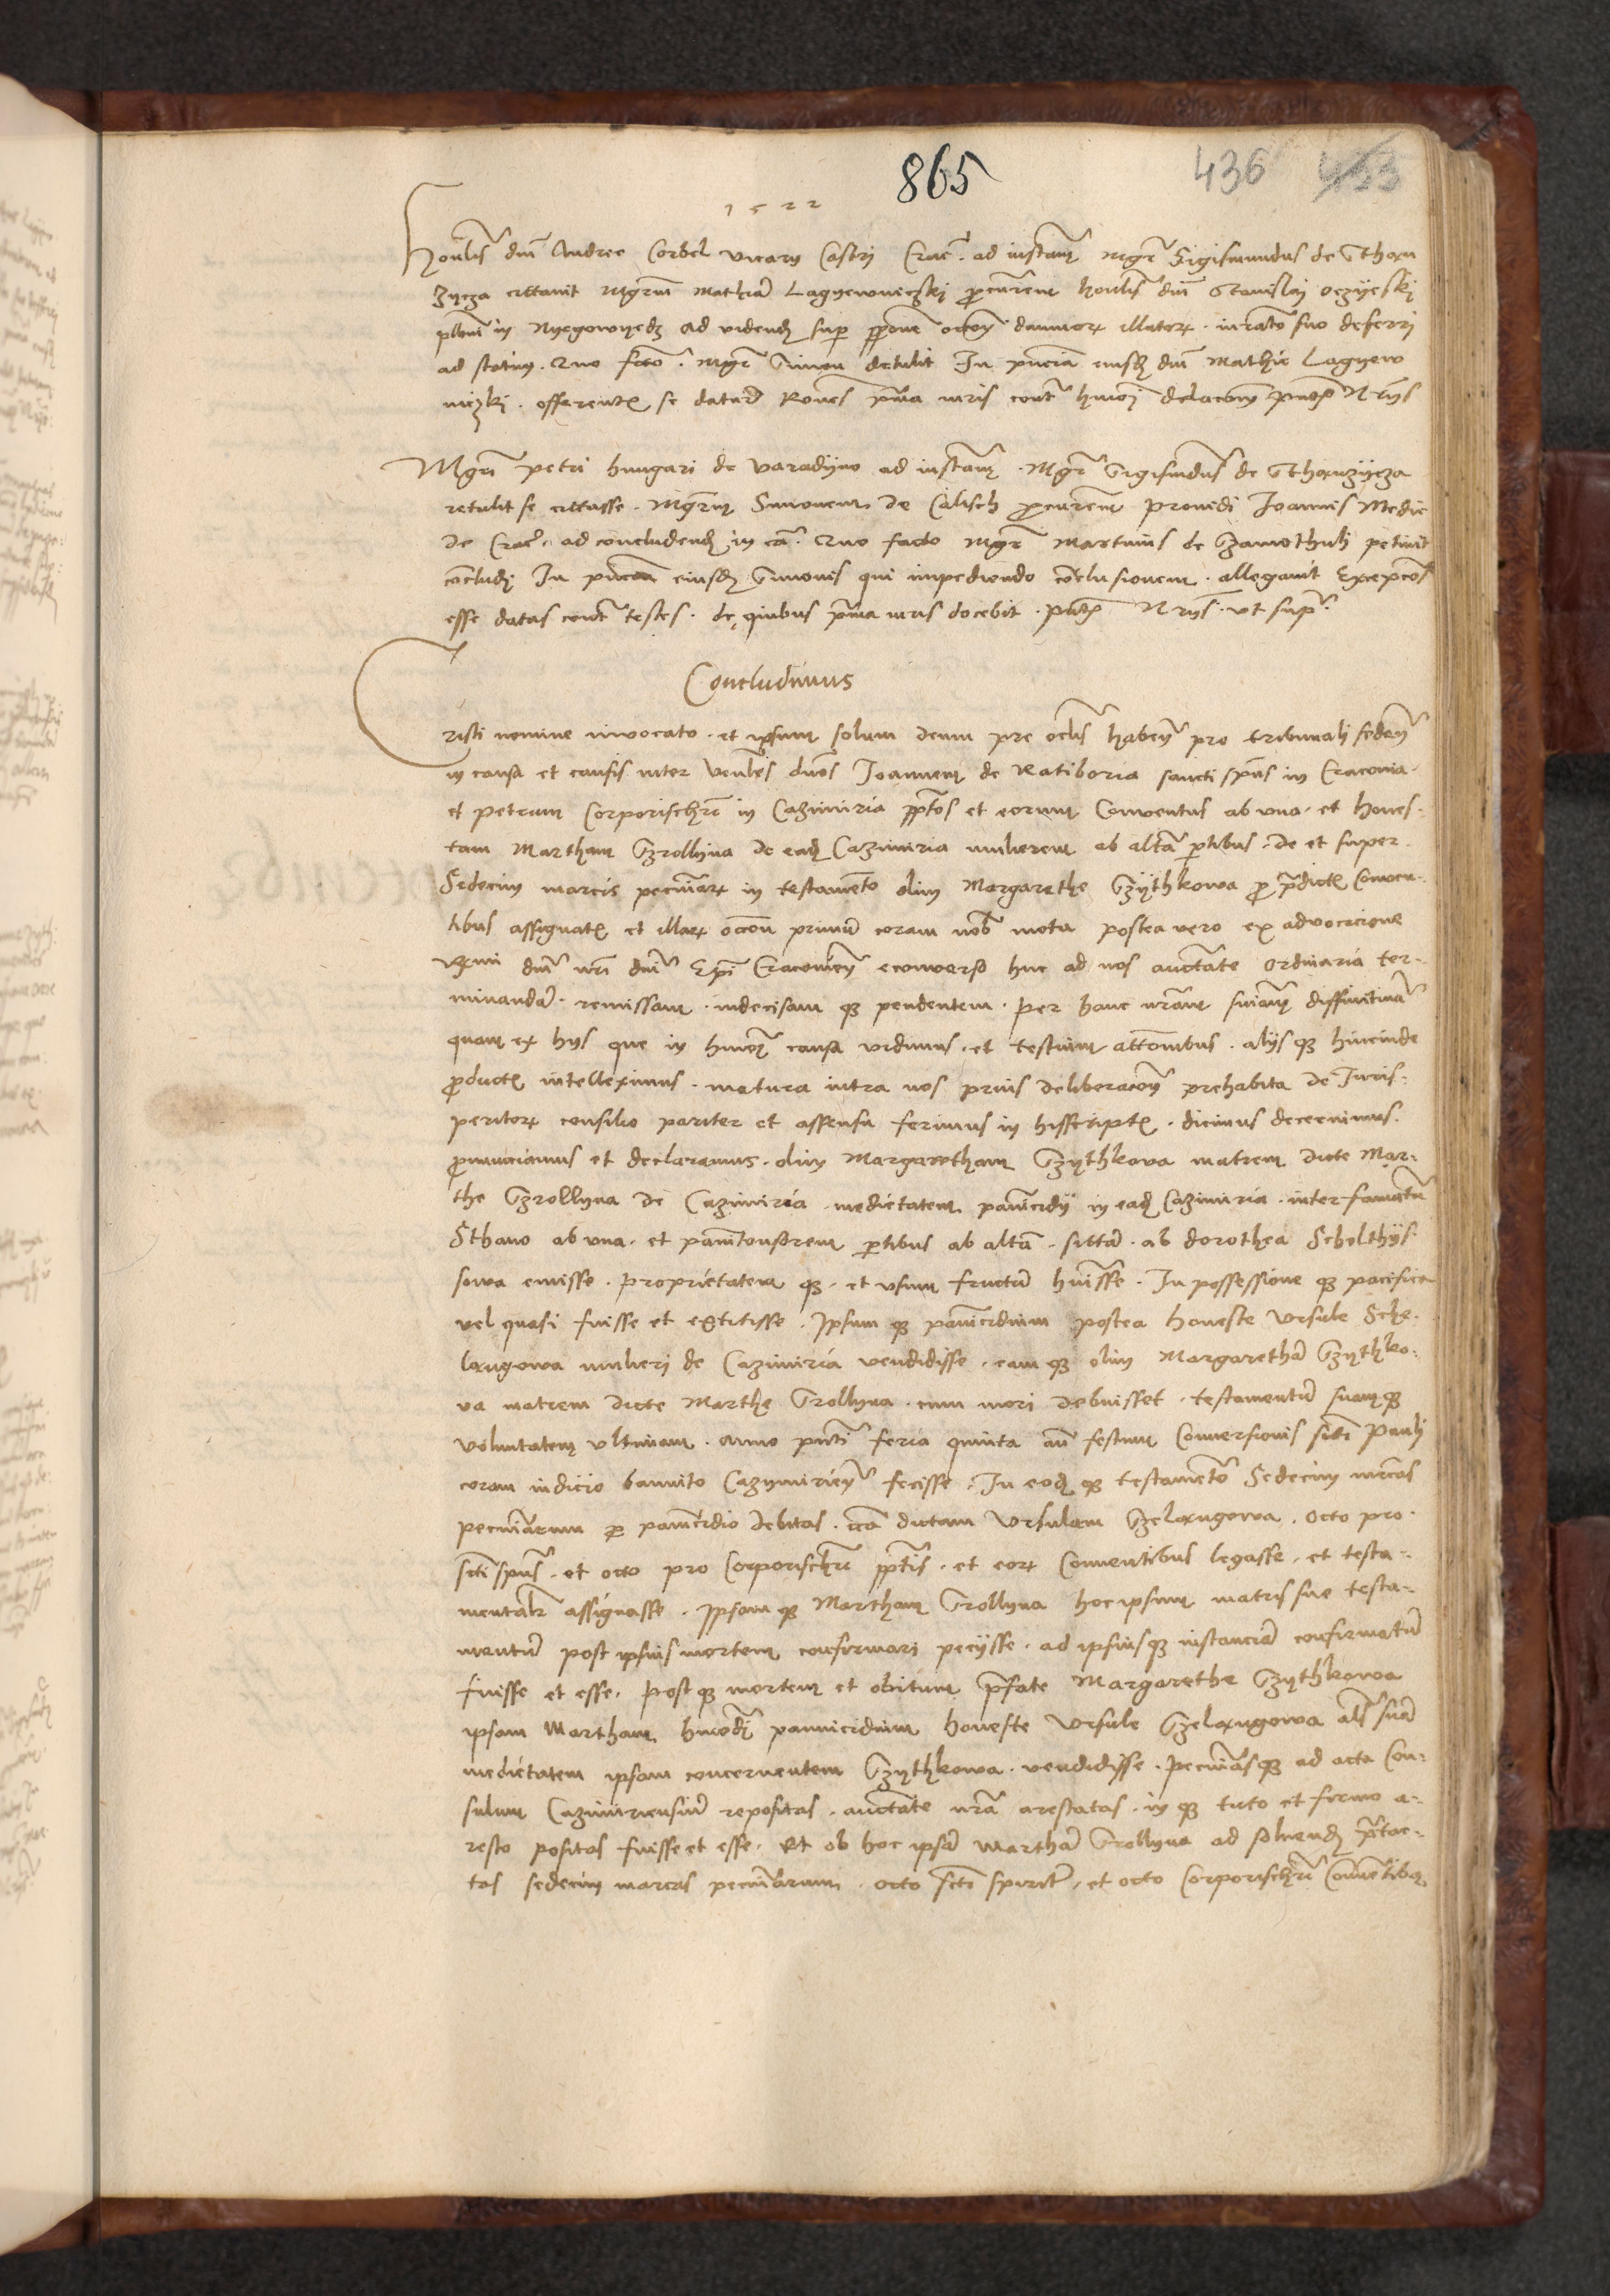 865 436 433
1522
Honlis dni Andree Corbel vicary Castri Crac. ad instam Mgr Sigismundus de
zycza cittavit Mgrum Mathia Lagyewniczkj procurem honlis dni Stanislaj oczyeskj
plbni in Nyegowyedz ad videnda sup damnor illator. iurato suo deferri
ad statim. Quo fcto. Mgr Simon detulit In pncia eiusd dni Mathie Lagyew
niczkj. offerente se datur Rones pma iuris cont hmoi delacom pntq N
Mgri petri hungari de varadyno ad instam. Mgr Sigismudus de
retulit se cittasse. Mgrum Simonem de Calisch procurem providi Joannis Medic
de Crac. ad concludend in ca. Quo facto Mgr Martinus de Szamothuli petivit
concludj In pncia eiusd Simonis qui impediendo conclusionem. allegavit Excepcoes
esse datas cont testes. de quibus pma iuris docebit. pntq N ut sup.
Concludimus
Cristi nomine invocato. et ipsum solum deum pre oclis haben pro tribunali seden
in causa et causis inter venbles dnos Joannem de Ratiboria sancti spus in Cracovia
et petrum Corporischri in Cazimiria ppitos et eorum Conventus ab una. et hones-
tam Martham Grollyna de ead Cazimiria mulierem ab alta ptibus. de et super
Sedecim marcis pecuniar in testamento olim Margarethe Gzythkowa pro pdictis Conven-
tibus assignatis et illar occoe primum coram nob mota postea vero ex advocacione
Rmi dni nri dni Epi Cracovien econverso huc ad nos auctate ordinaria ter-
minanda. remissam. indecisam q pendentem. per hanc nram sniam diffinitivam
quam ex hys que in hmoi causa vidimus. et testium attonibus. alys q hincinde
productis intelleximus. matura intra nos prius deliberacoe prehabita de Juris-
peritor consilio pariter et assensu ferimus in hisscriptis. dicimus decernimus.
pronunciamus et declaramus. olim Margaretham Gzythkova matrem dicte Mar-
the Gzrollyna de Cazimiria. medietatem pannicidy in ead Cazimiria. inter famatum
Sthano ab una. et pannitonsorem ptibus ab alta. sitta. ab dorothea Scholthys
sowa emisse. proprietatem q. et usum fructum huisse. In possessione q pacifica
vel quasi fuisse et extitisse. Ipsum q pannicidium postea honeste Ursule Sche-
laxugowa mulieri de Cazimiria vendidisse. eam q olim Margaretha Gzythko-
va matrem dicte Marthe Grollyna. cum mori debuisset. testamentum suamq
voluntatem ultimam. Anno pnti feria quinta an festum Conversionis scti Pauli
coram indicio bannito Cazymirien fecisse. In eod q testamento Sedecim mrcas
pecuniarum p pannicidio debitas. dictam Ursulam Gzelaxugowa. octo pro
scti spus. et octo pro Corporischri pptis. et eor Conventibus legasse. et testa-
mentalr assignasse. Ipsam q Martham Grollyna hoc ipsum matris sue testa-
mentum post ipsius mortem confirmari pecysse. ad ipsiusq instancia confirmatum
fuisse et esse. post q mortem et obitum pfate Margarethe Gzythkowa
ipsam Martham hmodi pannicidium honeste Ursule Gzelaxugowa als sua
medietatem ipsam concernentem Gzythkowa. vendidisse. pecuniasq ad acta Con-
sulum Cazimiriensium repositas. auctate nra arestatas. in q tuto et firmo a-
resto positas fuisse et esse. Et ob hoc ipsa Martha Grollyna ad solvend ptac-
tas sedecim marcas pecuniarum. octo scti spirit. et octo Corporischri Conventibq